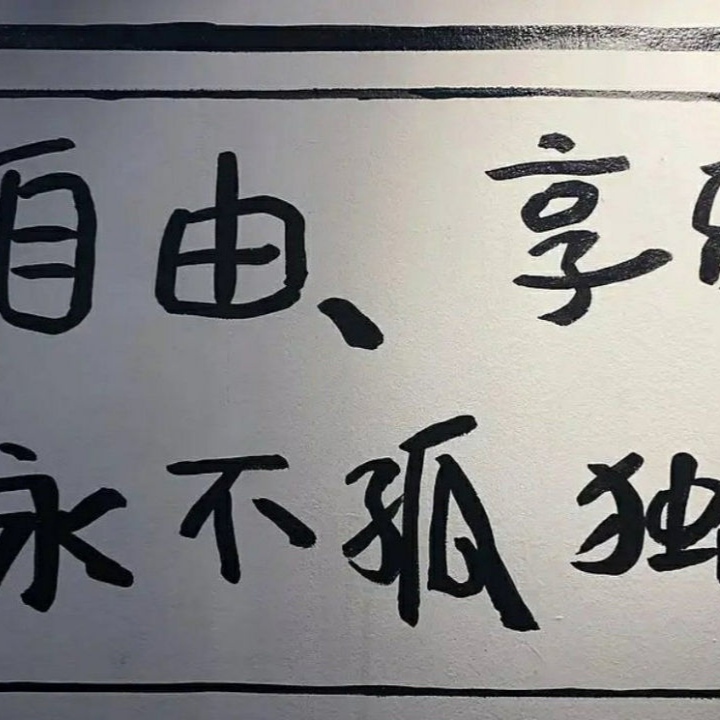 自由、享
永不孤独